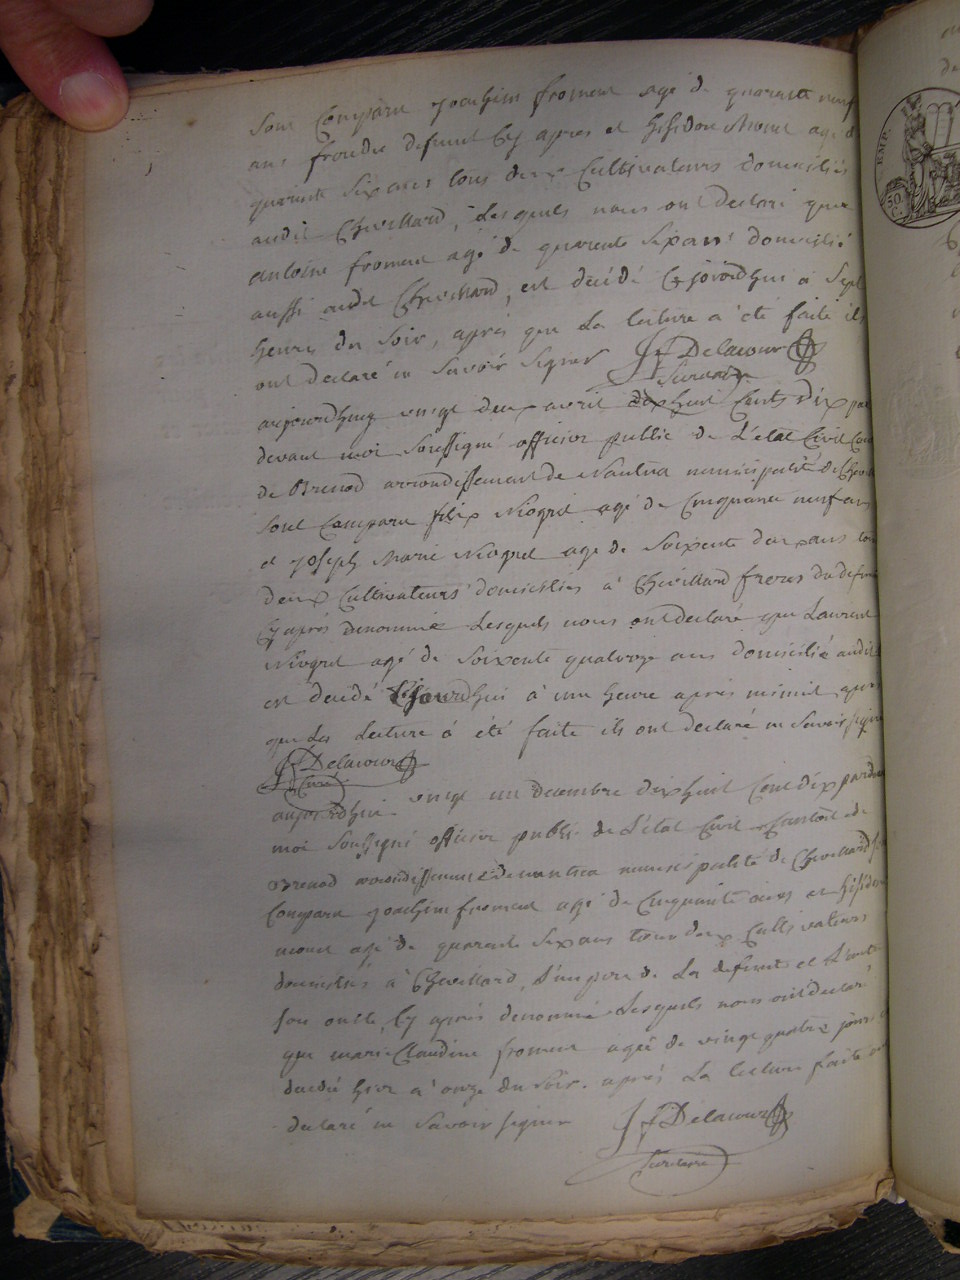 sont Comparu joachim froment agé de quarante neuf
ans frere du defunt Cy apres et hisidore Monet agé de
quarante six ans tous deux Cultivateurs domiciliés
audit Chevillard, Lesquels nous ont declaré que
antoine froment agé de quarente six ans domicilié
aussi audit Chevillard, est decédé Cejourdhui a sept
heures du soir, aprés que La lecture a été faite ils
ont declaré ne savoir signer J f Delacour
Secretaire
aujourdhuy vingt deux avril dixhuit Cents dix par
devant moi soussigné officier public de L'état Civil
de Brenod arrondissement de Nantua municipalité de
sont Comparu felix Niogret agé de Cinquante neuf ans
et joseph Marie Niogret agé de soixente deux ans tous
deux Cultivateurs domiciliés a Chevillard freres du defunt
Cy aprés denommé Lesquels nous ont declaré que Laurent
Niogret agé de soixente quatorze ans domicilié audit
est decédé Cejourdhui à une heure aprés minuit apres
que La Lecture à été faite ils ont declaré ne savoir signer
J f Delacour
aujourdhui vingt un decembre dixhuit Cent dix pardevant
moi soussigné officier public de L'état Civil Canton de
Brenod arrondissement de nantua municipalité de Chevillard
Comparu joachim froment agé de Cinquante ans et hisidore
monet agé de quarente six ans tous deux Cultivateurs
domiciliés à Chevillard, L'un pere de La defunte et L'autre
son oncle Cy aprés denommé Lesquels nous ont declaré
que marie Claudine froment agée de vingt quatre jours
decedé hier a onze du soir. aprés La lecture faite
declaré ne savoir signer J f Delacour
Secretaire
EMP.
50
C.